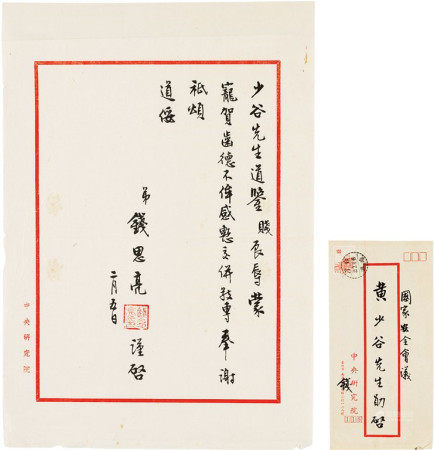 少谷先生道鑒 賤辰辱蒙
寵賀齒德不侔感慙交併敬專奉謝
祗頌
道綏
弟 錢思亮 謹啓
二月五日
中央研究院
國家安全會議
黃少谷先生勛啓
中央研究院
錢